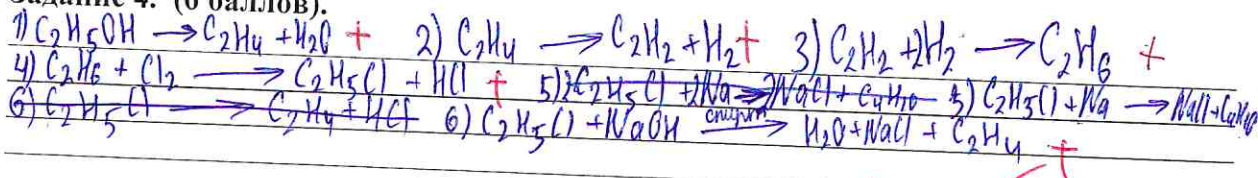 Задание 4. (6 баллов).
1) C2H5OH → C2H4 + H2O + 2) C2H4 → C2H2 + H2 + 3) C2H2 + 2H2 → C2H6 +
4) C2H6 + Cl2 → C2H5Cl + HCl + 5) 2C2H5Cl + 2Na → 2NaCl + C4H10 5) C2H5Cl + Na → NaCl + C4H10
6) C2H5Cl → C2H4 + HCl 6) C2H5Cl + NaOH спирт→ H2O + NaCl + C2H4 +